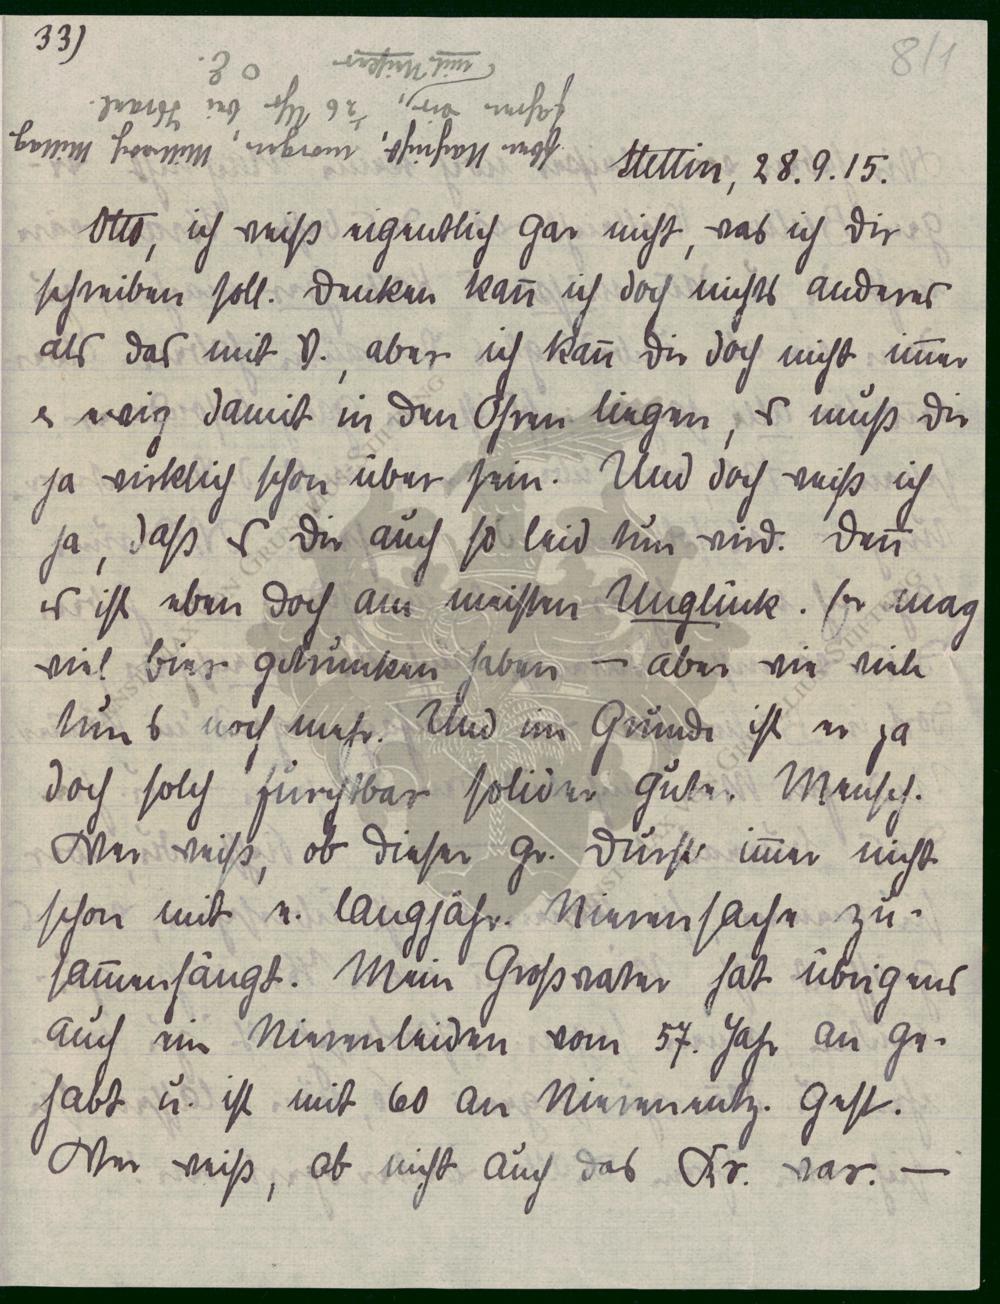 33)
8/1
Eben Nachricht, morgen, Mittwoch Mittag
fahren wir, ½6 Uhr bei Kranl.
mit Mutter
O L.
Stettin, 28.9.15.
Otto, ich weiß eigentlich gar nicht, was ich dir
schreiben soll. Denken kan̅ ich doch nichts anderes
als das mit V., aber ich kan̅ dir doch nicht im̅er
u ewig damit in den Ohren liegen, es muß dir
ja wirklich schon über sein. Und doch weiß ich
ja, daß es dir auch so leid tun wird. Den̅
es ist eben doch am meisten Unglück. Er mag
viel Bier getrunken haben — aber wie viele
tun's noch mehr. Und im Grunde ist er ja
doch solch furchtbar solider guter Mensch.
Wer weiß, ob dieser gr. Durst im̅er nicht
schon mit e. langjähr. Nierensache zu-
sam̅enhängt. Mein Großvater hat übrigens
auch ein Nierenleiden vom 57. Jahr an ge-
habt u. ist mit 60 an Nierenentz. gest.
Wer weiß, ob nicht auch das Kr. war. —